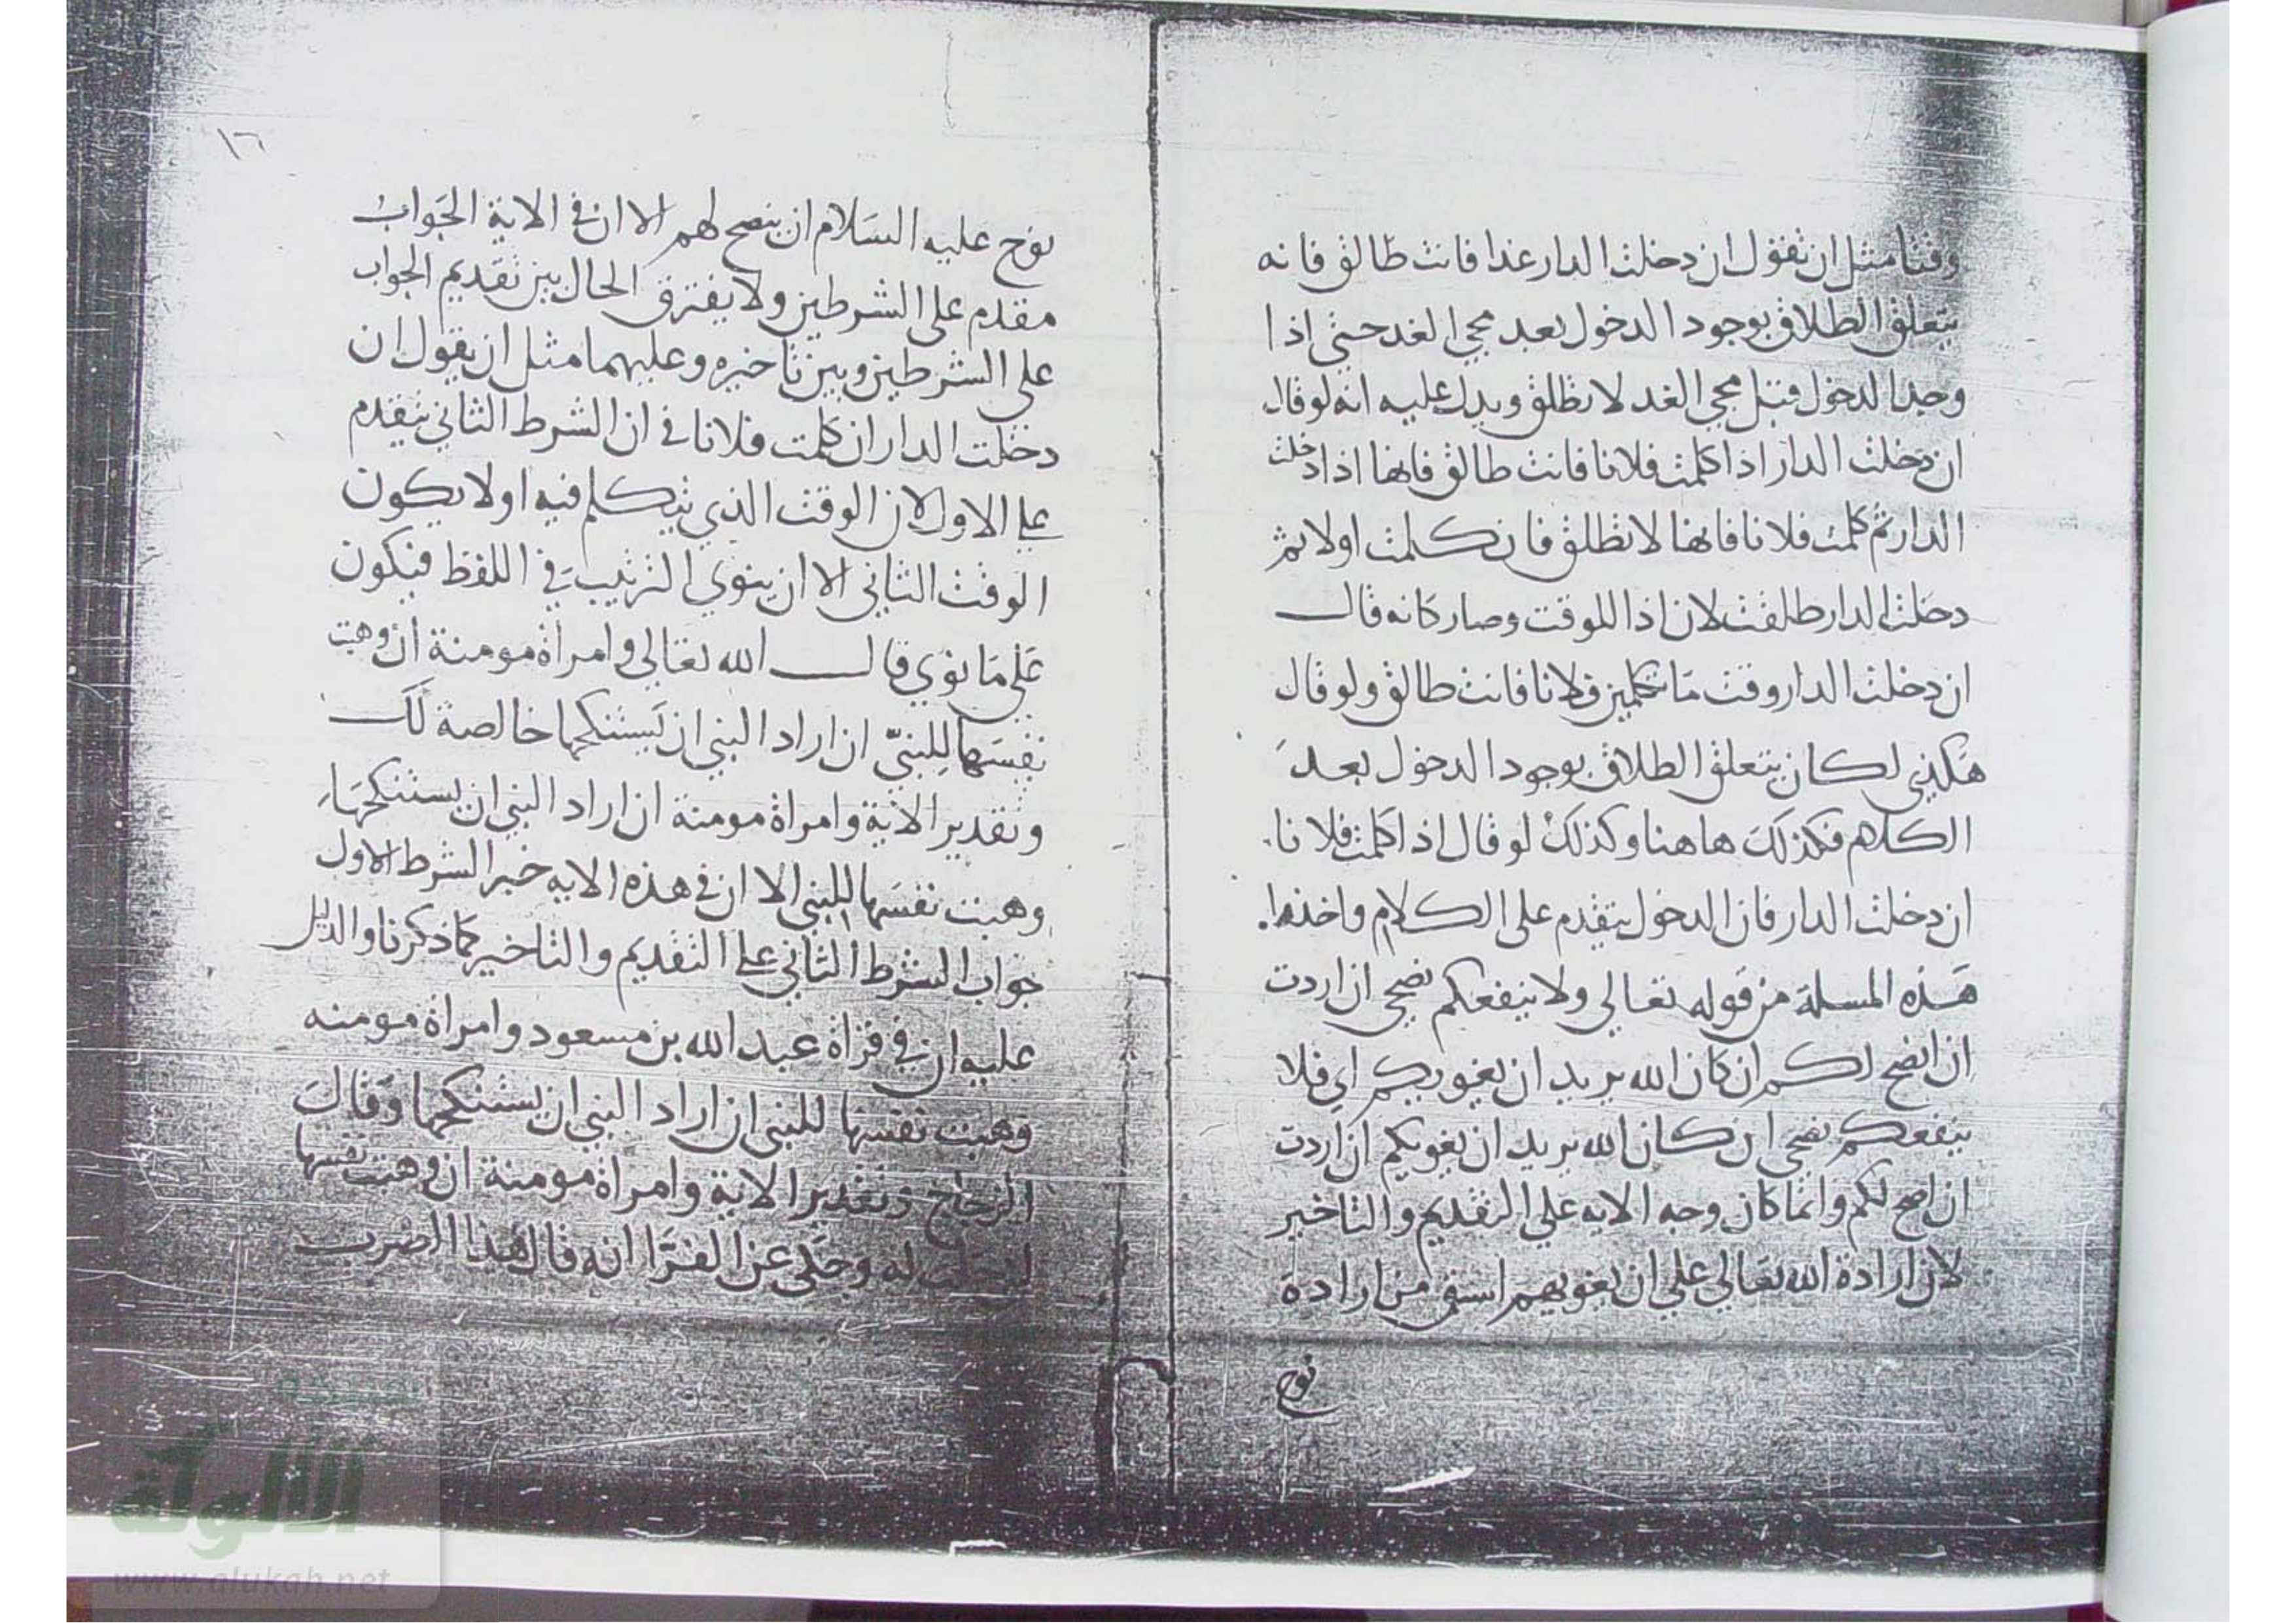 وقتا مثل ان تقول ان دخلت الدار غدا فانت طالق فانه
يتعلق الطلاق بوجود الدخول بعد مجي الغد حتى اذا
وجد الدخول قبل مجي الغد لا تطلق ويدل عليه انه لو قال
ان دخلت الدار اذا كلمت فلانا فانت طالق فانها اذا دخلت
الدار ثم كلمت فلانا فانها لا تطلق فان كلمت اولا ثم
دخلت الدار طلقت لان اذا للوقت وصار كانه قال
ان دخلت الدار وقت ما تكلمين فلانا فانت طالق ولو قال
هكذي لكان يتعلق الطلاق بوجود الدخول بعد
الكلام فكذلك هاهنا وكذلك لو قال اذا كلمت فلانا
ان دخلت الدار فان الدخول يتقدم على الكلام واخذوا
هذه المسلة من قوله تعالي ولا ينفعكم نصحي ان اردت
ان انصح لكم ان كان الله يريد ان يغويكم اي فلا
ينفعكم نصحي ان كان الله يريد ان يغويكم ان اردت
ان انصح لكم وانما كان وجه الايه علي التقديم والتاخير
لان ارادة الله تعالي علي ان يغويهم اسبق من ارادة
نوح
١٦
نوح عليه السلام ان ينصح لهم الا ان في الاية الجواب
مقدم على الشرطين ولا يفترق الحال بين تقديم الجواب
على الشرطين وبين تاخيره وعليهما مثل ان يقول ان
دخلت الدار ان كلمت فلانا في ان الشرط الثاني يتقدم
على الاول لان الوقت الذي يتكلم فيه اولا يكون
الوقت الثاني الا ان ينوي الترتيب في اللفظ فيكون
على ما نوي قال الله تعالي وامراة مومنة ان وهبت
نفسها للنبي ان اراد النبي ان يستنكحها خالصة لك
وتقدير الاية وامراة مومنة ان اراد النبي ان يستنكحها
وهبت نفسها للنبي الا ان في هذه الايه خبر الشرط الاول
جواب الشرط الثاني على التقديم والتاخير كما ذكرنا والدليل
عليه ان في قراة عبد الله بن مسعود وامراة مومنه
وهبت نفسها للنبي ان اراد النبي ان يستنكحها وقال
الزجاج وتقدير الاية وامراة مومنة ان وهبت نفسها
له وحكي عن الفرا انه قال هذا الضرب
الألوكة
www.alukah.net